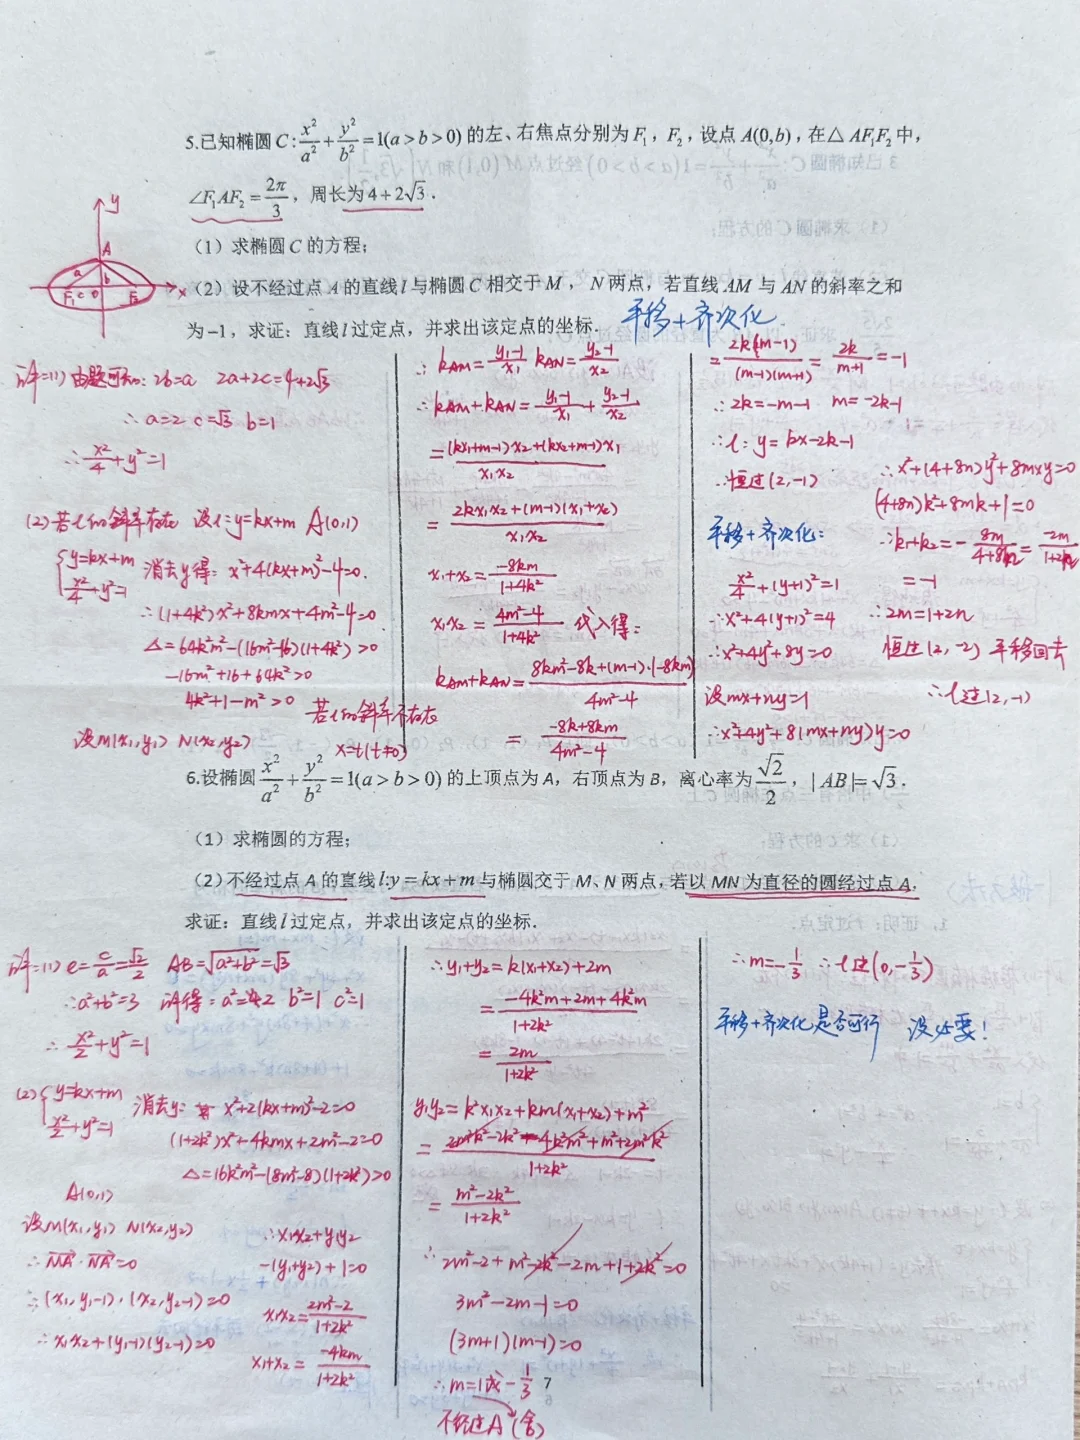 5.已知椭圆C:x²/a²+y²/b²=1(a>b>0)的左、右焦点分别为F₁，F₂，设点A(0,b)，在△AF₁F₂中，
∠F₁AF₂=2π/3，周长为4+2√3．
（1）求椭圆C的方程；
（2）设不经过点A的直线l与椭圆C相交于M，N两点，若直线AM与AN的斜率之和
为−1，求证：直线l过定点，并求出该定点的坐标．
平移+齐次化
y
A
a
b
F₁ c 0 F₂ x
解=(1) 由题可知：2b=a 2a+2c=4+2√3
∴a=2 c=√3 b=1
∴x²/4+y²=1
(2)若l的斜率存在 设l：y=kx+m A(0,1)
{y=kx+m
x²/4+y²=1 消去y得：x²+4(kx+m)²-4=0.
∴(1+4k²)x²+8kmx+4m²-4=0
Δ=64k²m²-(16m²-16)(1+4k²)>0
-16m²+16+64k²>0
4k²+1-m²>0
若l的斜率不存在
设M(x₁,y₁) N(x₂,y₂)
x=t(t≠0)
∴kAM=(y₁-1)/x₁ kAN=(y₂-1)/x₂
∴kAM+kAN=(y₁-1)/x₁+(y₂-1)/x₂
=((kx₁+m-1)x₂+(kx₂+m-1)x₁)/(x₁x₂)
=(2kx₁x₂+(m-1)(x₁+x₂))/(x₁x₂)
x₁+x₂=-8km/(1+4k²)
x₁x₂=(4m²-4)/(1+4k²) 代入得：
kAM+kAN=(8km²-8k+(m-1)·(-8km))/(4m²-4)
=(-8k+8km)/(4m²-4)
=2k(m-1)/((m-1)(m+1))=2k/(m+1)=-1
∴2k=-m-1 m=-2k-1
∴l：y=kx-2k-1
∴恒过(2,-1)
平移+齐次化：
x²/4+(y+1)²=1
∴x²+4(y+1)²=4
∴x²+4y²+8y=0
设mx+ny=1
∴x²+4y²+8(mx+ny)y=0
∴x²+(4+8n)y²+8mxy=0
(4+8n)k²+8mk+1=0
∴k₁+k₂=-8m/(4+8n)=-2m/(1+2n)
=-1
∴2m=1+2n
恒过(2,-2) 平移回去
∴l过(2,-1)
6.设椭圆x²/a²+y²/b²=1(a>b>0)的上顶点为A，右顶点为B，离心率为√2/2，|AB|=√3．
（1）求椭圆的方程；
（2）不经过点A的直线l:y=kx+m与椭圆交于M、N两点，若以MN为直径的圆经过点A，
求证：直线l过定点，并求出该定点的坐标．
解=(1) e=c/a=√2/2 AB=√(a²+b²)=√3
∴a²+b²=3 解得：a²=2 b²=1 c²=1
∴x²/2+y²=1
(2){y=kx+m
x²/2+y²=1 消去y： x²+2(kx+m)²-2=0
(1+2k²)x²+4kmx+2m²-2=0
Δ=16k²m²-(8m²-8)(1+2k²)>0
A(0,1)
设M(x₁,y₁) N(x₂,y₂)
∴MA·NA=0
∴(x₁,y₁-1)·(x₂,y₂-1)=0
∴x₁x₂+(y₁-1)(y₂-1)=0
∴x₁x₂+y₁y₂
-(y₁+y₂)+1=0
x₁x₂=(2m²-2)/(1+2k²)
x₁+x₂=-4km/(1+2k²)
∴y₁+y₂=k(x₁+x₂)+2m
=(-4k²m+2m+4k²m)/(1+2k²)
=2m/(1+2k²)
y₁y₂=k²x₁x₂+km(x₁+x₂)+m²
=(2m²k²-2k²-4k²m²+m²+2m²k²)/(1+2k²)
=(m²-2k²)/(1+2k²)
∴2m²-2+m²-2k²-2m+1+2k²=0
3m²-2m-1=0
(3m+1)(m-1)=0
∴m=1或-1/3
不经过A(舍)
7
∴m=-1/3 ∴l过(0,-1/3)
平移+齐次化是否可行 没必要！